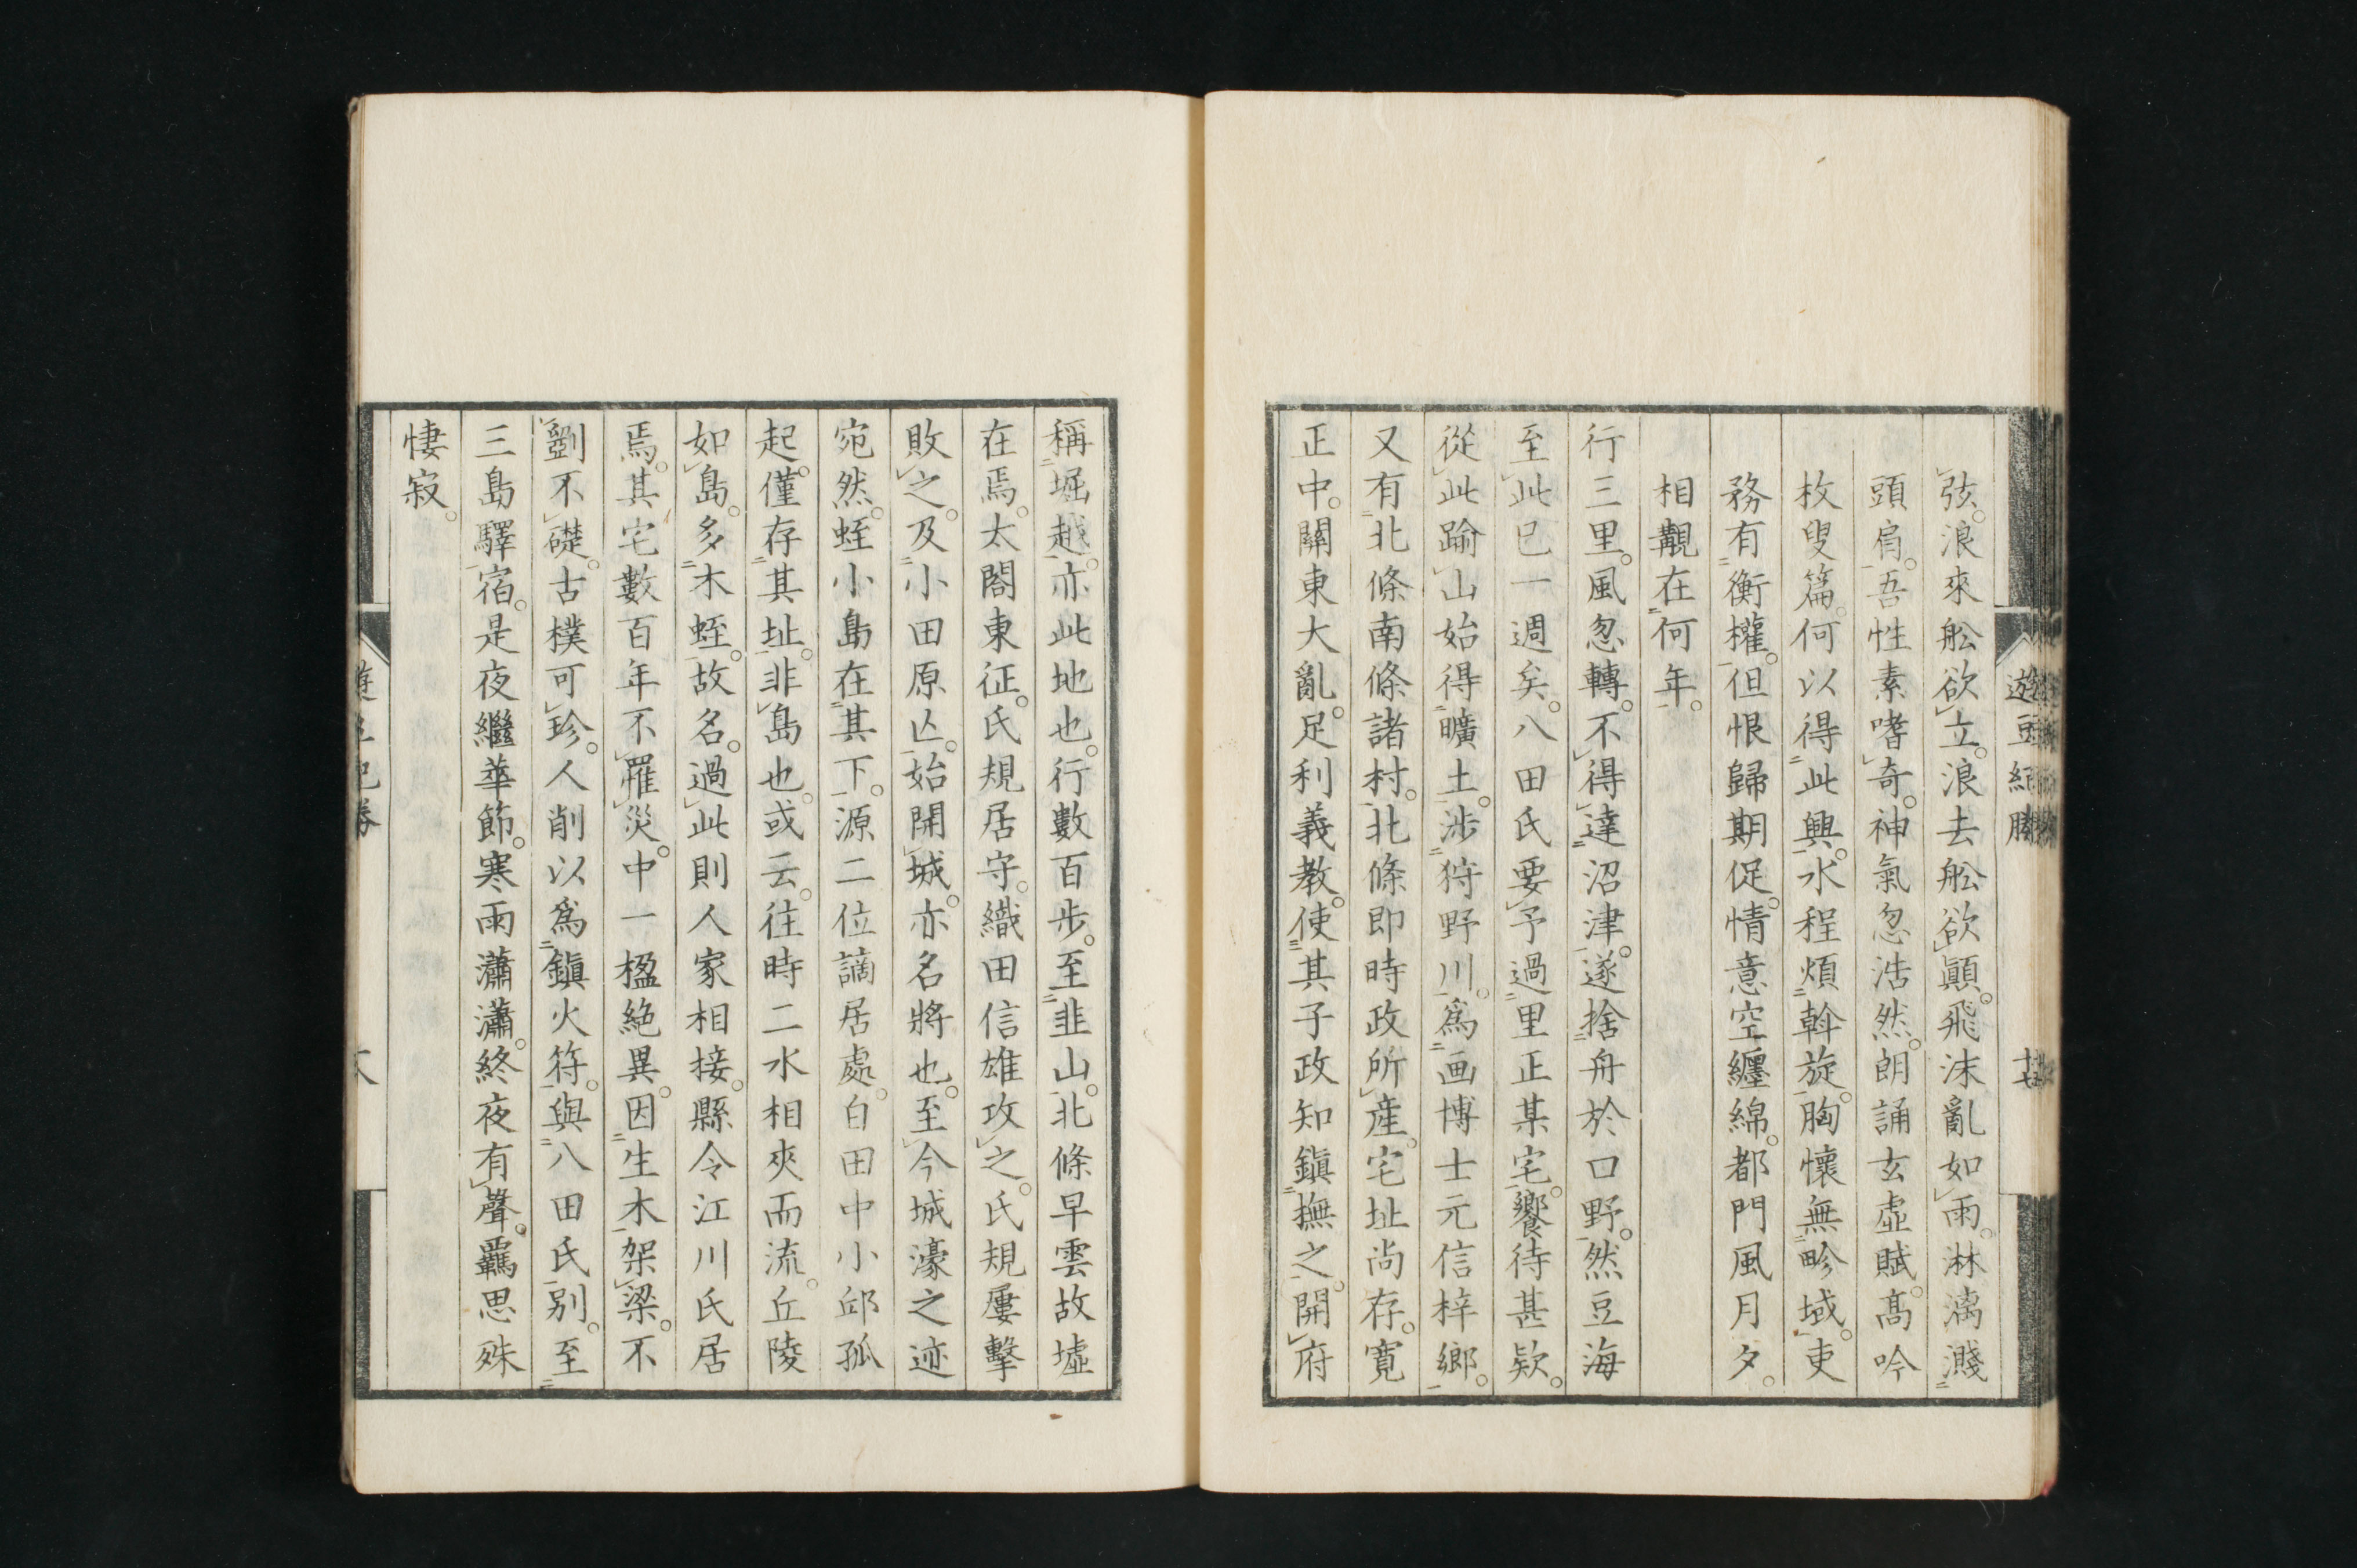 遊豆紀勝
十七
弦。浪來舩欲立。浪去舩欲顚。飛沫亂如雨。淋漓濺
頭肩。吾性素嗜奇。神氣忽浩然。朗誦玄虛賦。高吟
枚叟篇。何以得此興。水程煩斡旋。胸懷無畛域。吏
務有衡權。但恨歸期促。情意空纏綿。都門風月夕。
相觀在何年。
行三里。風忽轉。不得達沼津。遂捨舟於口野。然豆海
至此已一週矣。八田氏要予過里正某宅。饗待甚欵。
從此踰山始得曠土。涉狩野川。爲画博士元信梓鄉。
又有北條南條諸村。北條即時政所產。宅址尚存。寬
正中。關東大亂。足利義教。使其子政知鎭撫之。開府
稱堀越。亦此地也。行數百步。至韭山。北條早雲故墟
在焉。太閤東征。氏規居守。織田信雄攻之。氏規屢擊
敗之。及小田原亾。始開城。亦名將也。至今城濠之迹
宛然。蛭小島在其下。源二位謫居處。白田中小邱孤
起。僅存其址。非島也。或云。往時二水相夾而流。丘陵
如島。多木蛭。故名。過此則人家相接。縣令江川氏居
焉。其宅數百年不罹災。中一楹絶異。因生木架梁。不
劉不礎。古樸可珍。人削以爲鎭火符。與八田氏別。至
三島驛宿。是夜繼華節。寒雨瀟瀟。終夜有聲。羈思殊
悽寂。